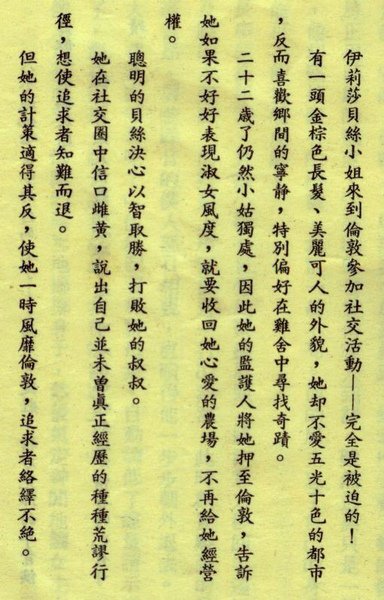 伊莉莎貝絲小姐來到倫敦參加社交活動——完全是被迫的！
有一頭金棕色長髮、美麗可人的外貌，她却不愛五光十色的都市
，反而喜歡鄉間的寧静，特別偏好在雞舍中尋找奇蹟。
二十二歲了仍然小姑獨處，因此她的監護人將她押至倫敦，告訴
她如果不好好表現淑女風度，就要收回她心愛的農場，不再給她經營
權。
聰明的貝絲決心以智取勝，打敗她的叔叔。
她在社交圈中信口雌黃，說出自己並未曾真正經歷的種種荒謬行
徑，想使追求者知難而退。
但她的計策適得其反，使她一時風靡倫敦，追求者絡繹不絕。